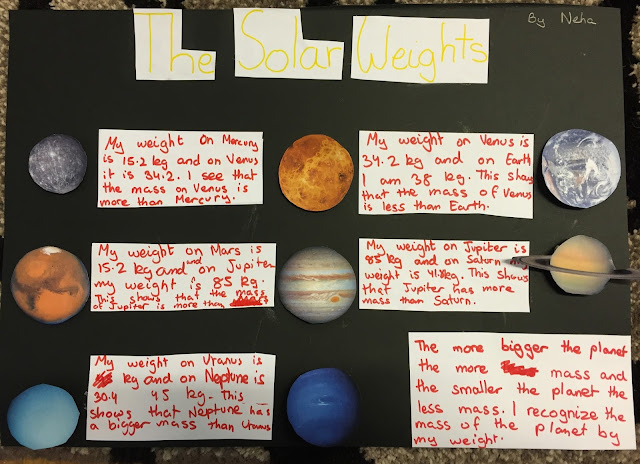 The Solar Weights
By Neha
My weight On Mercury
is 15.2 kg and on Venus
it is 34.2. I see that
the mass on Venus is
more than Mercury.
My weight on Venus is
34.2 kg and on Earth
I am 38 kg. This show
that the mass of Venus
is less than Earth.
My weight on Mars is
15.2 kg and on Jupiter
my weight is 85 kg.
This shows that the mass
of Jupiter is more than
My weight on Jupiter is
85 kg and on Saturn my
weight is 41.8kg. This shows
that Jupiter has more
mass than Saturn.
My weight on Uranus is
kg and on Neptune is
30.4 45 kg. This
shows that Neptune has
a bigger mass than Uranus
The more bigger the planet
the more mass and
the smaller the planet the
less mass. I recognize the
mass of the planet by
my weight.